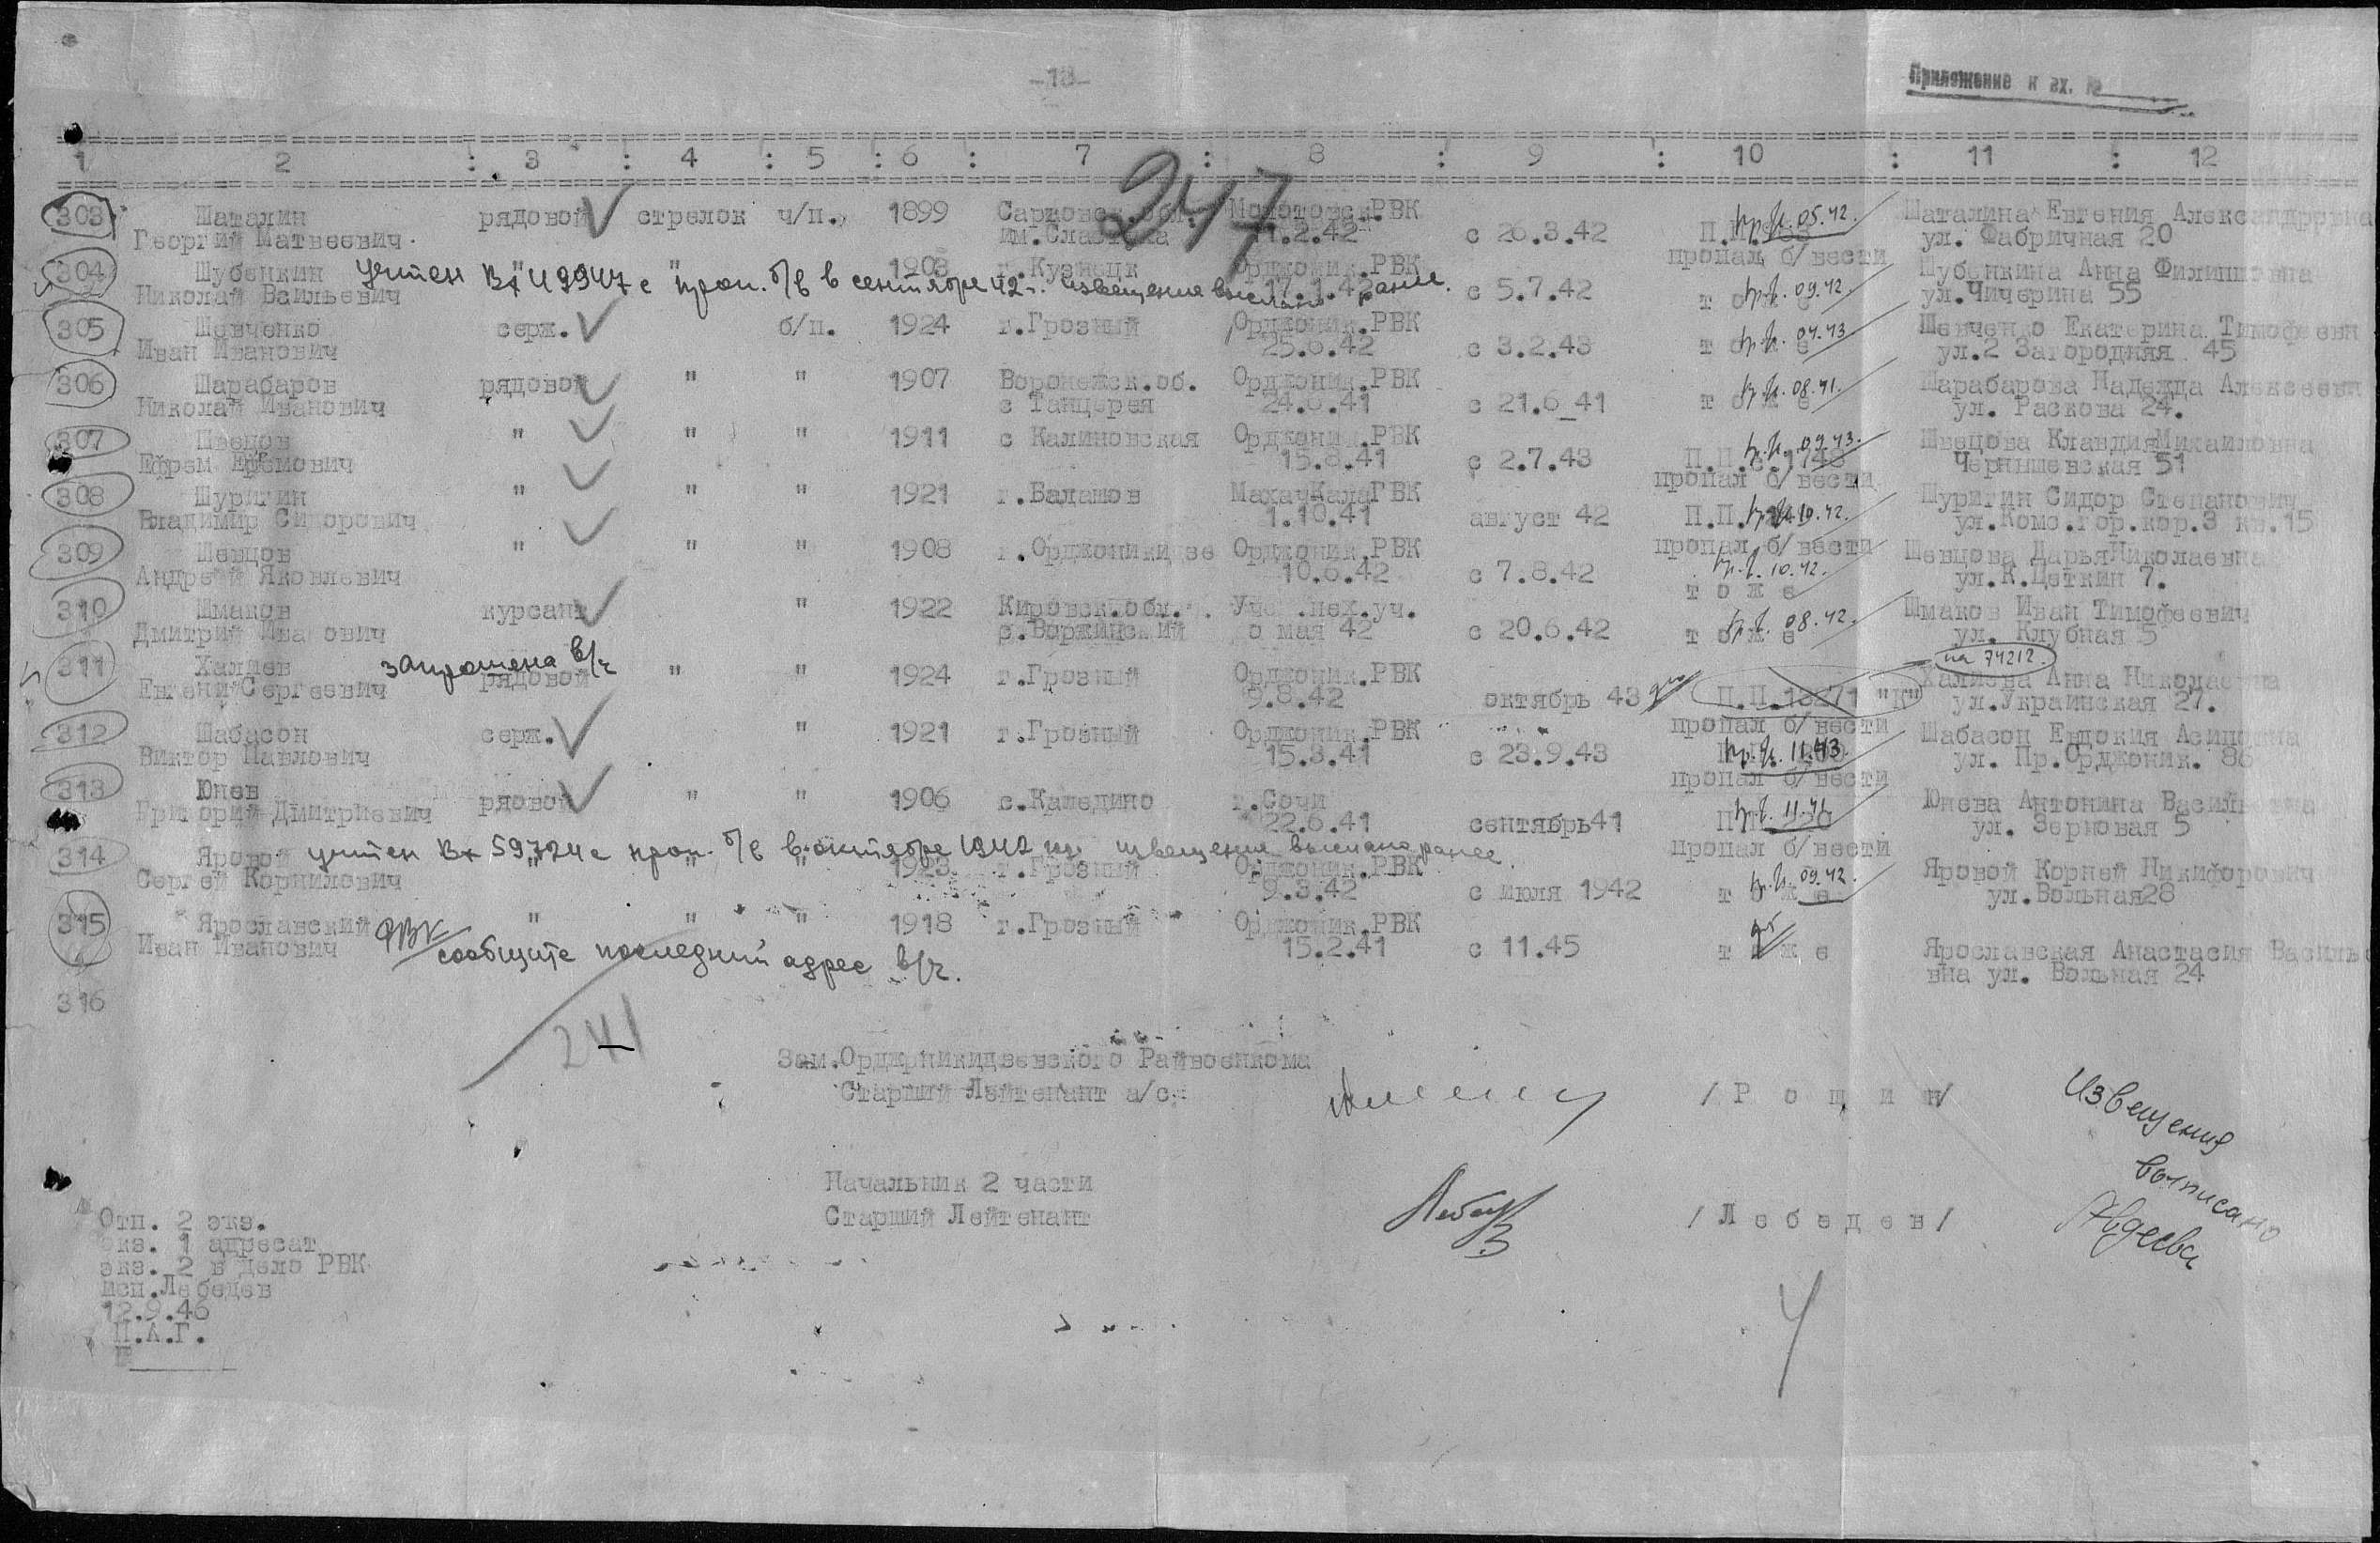 -18-
Приложение к вх. №
1 2 : 3 : 4 : 5 : 6 : 7 : 8 : 9 : 10 : 11 : 12
247
303 Шаталин рядовой стрелок ч/п. 1899 РВК пр.б. 05.42. Шаталина Евгения
Георгий Матвеевич 11.2.42 с 26.3.42 ул. Фабричная 20
пропал б/вести
304 Шубенкин " " 1903 г.Кузнецк Орджоник.РВК Шубенкина Анна Филипповна
учтен Вх 49947с проп. б/в в сентябре 42 г. извещение выслано ранее.
Николай Васильевич 17.1.42 с 5.7.42 то же 09.42. ул.Чичерина 55
305 Шевченко серж. б/п. 1924 г.Грозный Орджоник.РВК 04.43 Шевченко Екатерина Тимофеевн
Иван Иванович 25.6.42 с 3.2.43 то же ул.2 Загородняя 45
306 Шарабаров рядовой " " 1907 Воронежск.об. Орджоник.РВК 08.41. Шарабарова Надежда Алексеевн
Николай Иванович с Танцырея 24.6.41 с 21.6_41 то же ул. Раскова 24.
307 Швецов " " " 1911 с Калиновская Орджоник.РВК 09.43. Швецова Клавдия Михайловна
Ефрем Ефремович 15.8.41 с 2.7.43 Чернышевская 51
пропал б/вести
308 Шуригин " " " 1921 г.Балашов МахачКалаГВК Шуригин Сидор Степанович
Владимир Сидорович 1.10.41 август 42 П.П. 10.42. ул.Комс.гор.кор.3 кв.15
пропал б/вести
309 Шевцов " " " 1908 г.Орджоникидзе Орджоник.РВК 10.42. Шевцова Дарья Николаевна
Андрей Яковлевич 10.6.42 с 7.8.42 то же ул.К.Цеткин 7.
310 Шмаков курсант " 1922 Кировск.обл. Уч. .пех.уч. 08.42. Шмаков Иван Тимофеевич
Дмитрий Иванович с мая 42 с 20.6.42 то же ул. Клубная 5
на 74212.
311 Халиев запрошена в/ч рядовой " " 1924 г.Грозный Орджоник.РВК Халиева Анна Николаевна
Евгений Сергеевич 9.8.42 октябрь 43 П.П.18271 "К" ул.Украинская 27.
пропал б/вести
312 Шабасон серж. " 1921 г.Грозный Орджоник.РВК Шабасон Евдокия
Виктор Павлович 15.3.41 с 23.9.43 11.43. ул. Пр.Орджоник. 86
пропал б/вести
313 Юнев рядовой " " 1906 с.Каледино г.Сочи 11.41 Юнева Антонина Васильевна
Григорий Дмитриевич 22.6.41 сентябрь41 ул. Зерновая 5
пропал б/вести
учтен Вх 59724с проп. б/в в октябре 1942 г. извещение выслано ранее.
314 Яровой " " " 1923 г.Грозный Орджоник.РВК 09.42. Яровой Корней Никифорович
Сергей Корнилович 9.3.42 с июля 1942 то же ул.Вольная28
315 Ярославский " " " 1918 г.Грозный Орджоник.РВК
Иван Иванович 15.2.41 с 11.45 то же Ярославская Анастасия Василье
РВК сообщите последний адрес в/ч. вна ул. Вольная 24
316
241
Зам.Орджоникидзевского Райвоенкома
Старший Лейтенант а/с /Рощин/
Извещения
выписано
Авдеева
Начальник 2 части
Старший Лейтенант /Лебедев/
Отп. 2 экз.
экз. 1 адресат
экз. 2 в дело РВК
исп.Лебедев
12.9.46
П.А.Г.
№
4